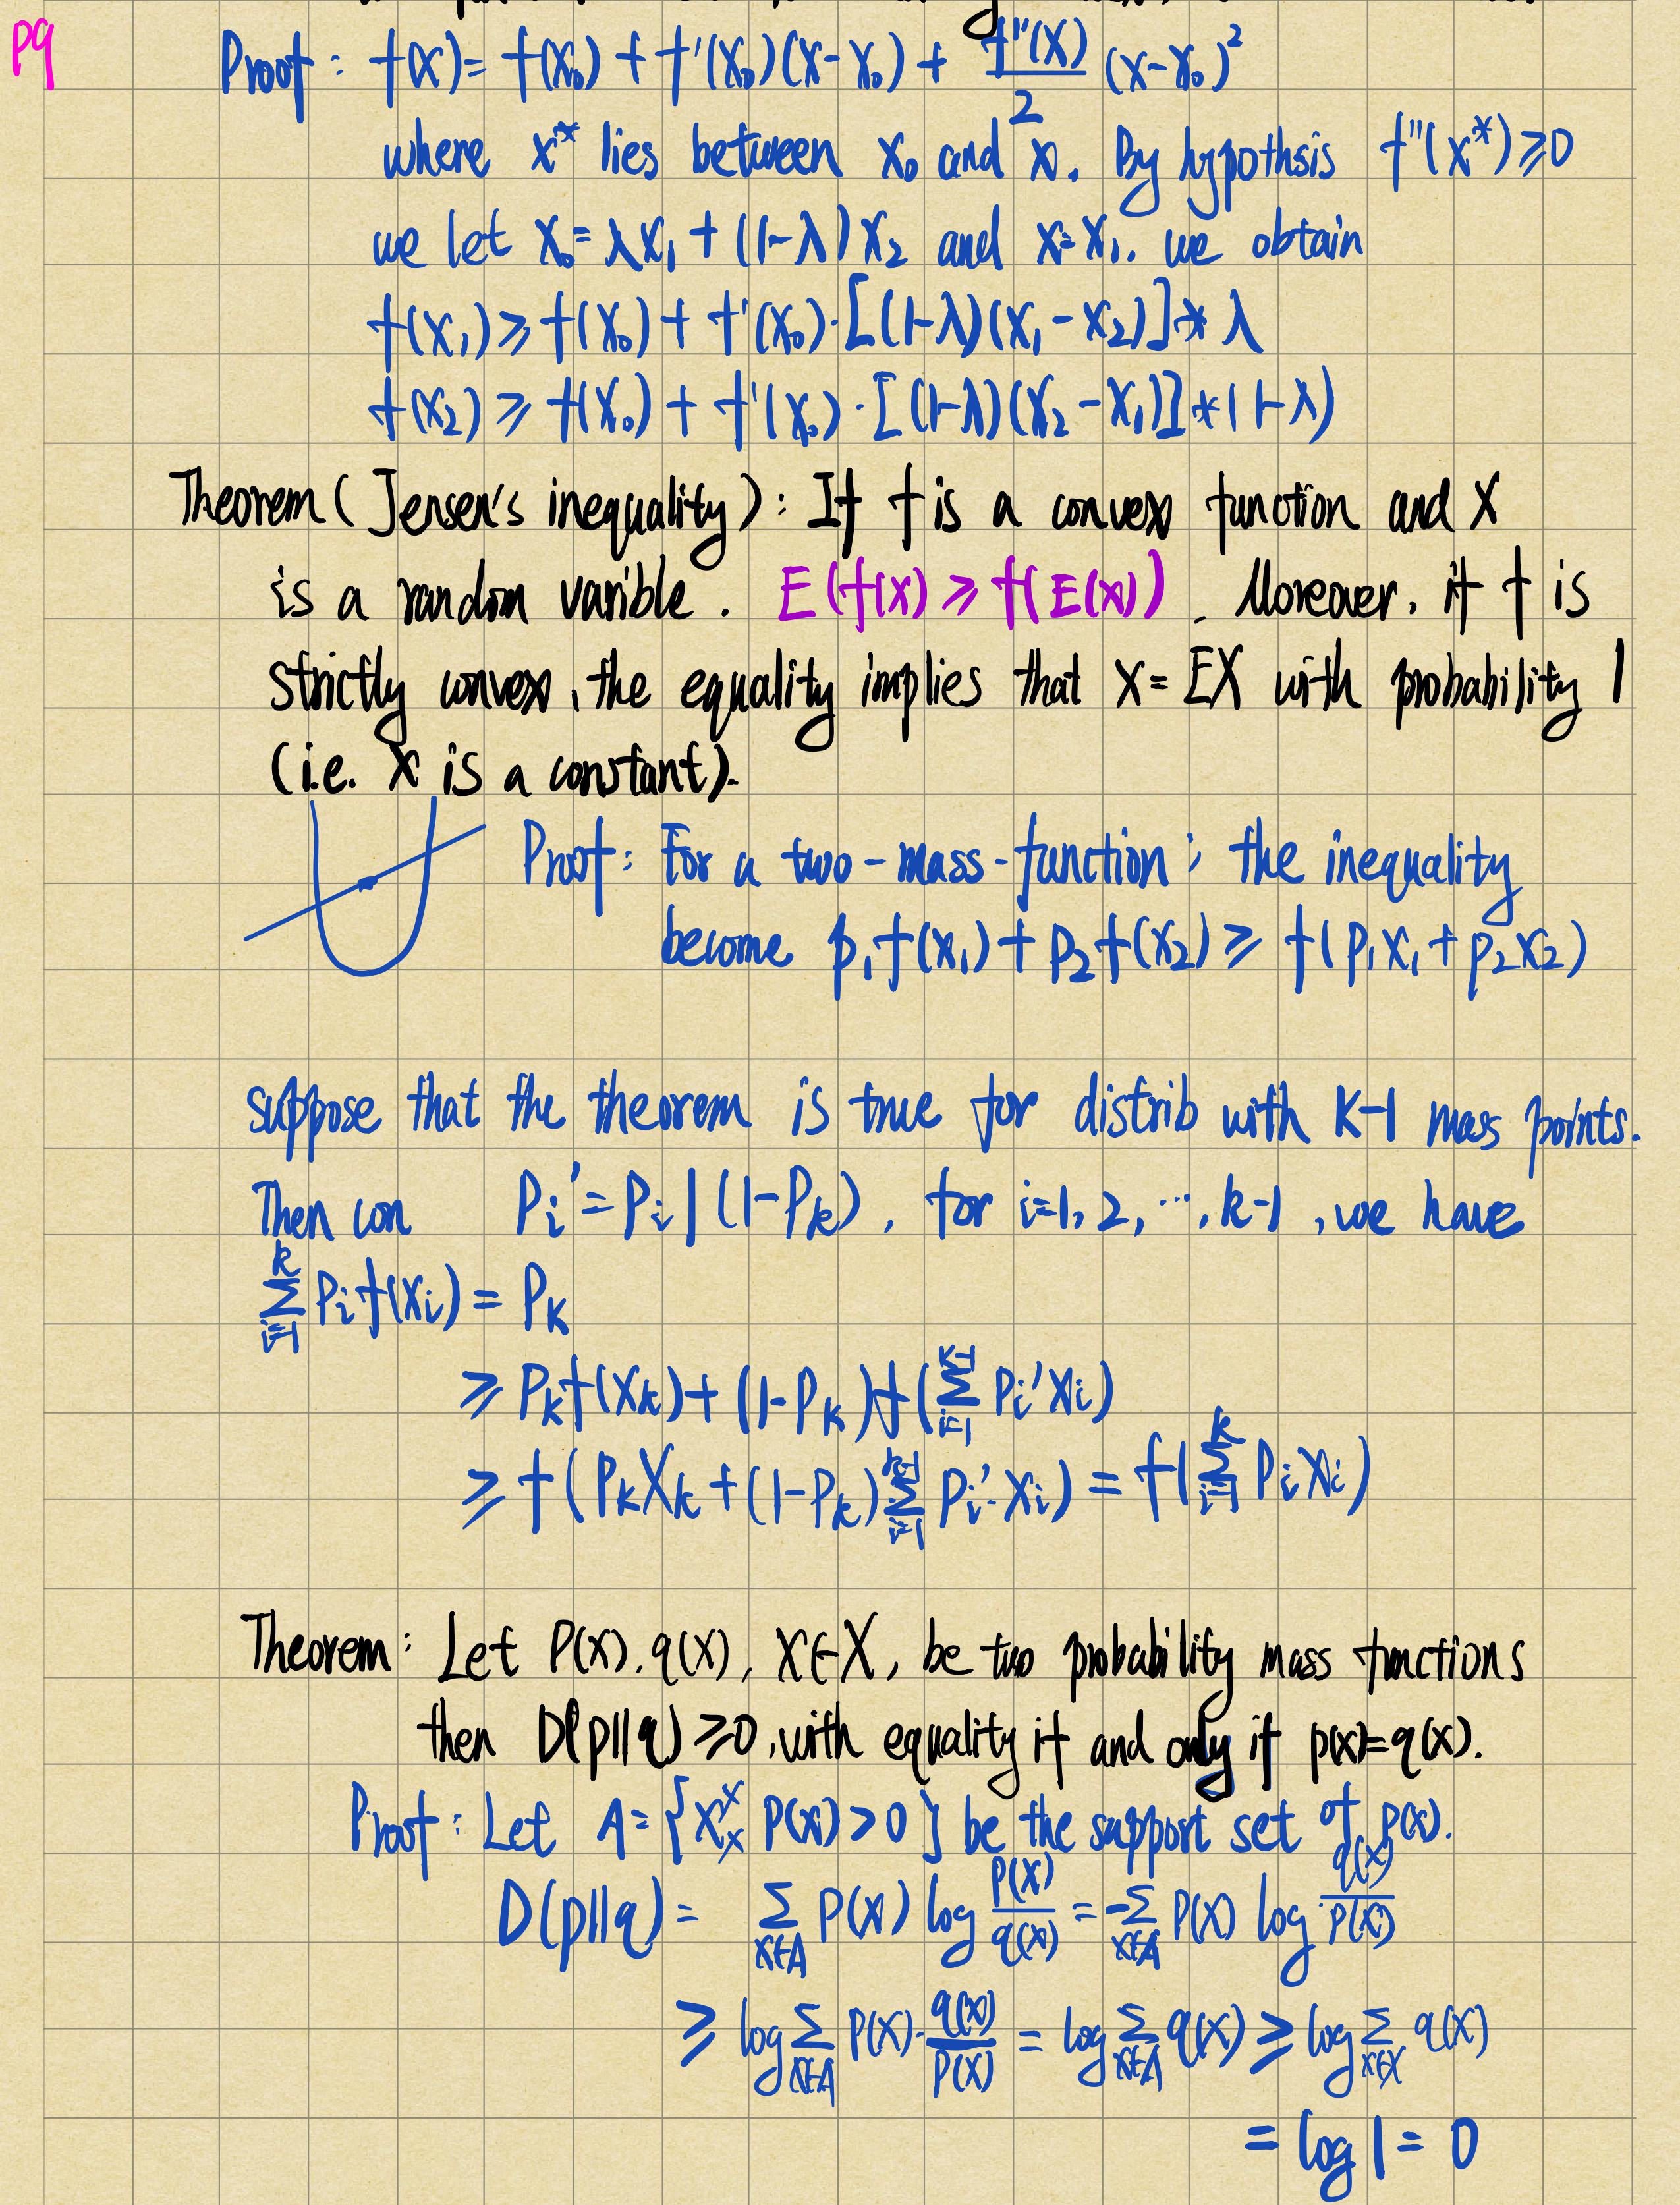 P9
Proof: f(x)= f(x₀) + f'(x₀)(x-x₀) + f''(x)/2 (x-x₀)²
where x* lies between x₀ and x. By hypothsis f''(x*)≥0
we let x₀=λx₁+(1-λ)x₂ and x=x₁. we obtain
f(x₁)≥f(x₀)+f'(x₀)·[(1-λ)(x₁-x₂)]* λ
f(x₂)≥f(x₀)+f'(x₀)·[(1-λ)(x₂-x₁)]*(1-λ)
Theorem(Jensen's inequality): If f is a convex function and X
is a random varible. E(f(x)≥f(E(x)). Moreover, if f is
strictly convex, the equality implies that X=EX with probability 1
(i.e. X is a constant).
Proof: For a two-mass-function; the inequality
become p₁f(x₁)+p₂f(x₂)≥f(p₁x₁+p₂x₂)
suppose that the theorem is true for distrib with K-1 mass points.
Then con Pi'=Pi|(1-Pk), for i=1,2,...,k-1, we have
∑_{i=1}^{k} Pif(xi)= Pk
≥Pkf(xk)+(1-Pk)f(∑_{i=1}^{k-1} Pi'xi)
≥f(PkXk+(1-Pk)∑_{i=1}^{k-1} Pi'·xi)=f(∑_{i=1}^{k} Pixi)
Theorem: Let P(x).q(x), X∈X, be two probability mass functions
then D(p||q)≥0, with equality if and only if p(x)=q(x).
Proof: Let A={X P(x)>0} be the support set of p(x).
D(p||q)= ∑_{x∈A} P(x) log P(x)/q(x) = -∑_{x∈A} P(x) log q(x)/p(x)
≥ log∑_{x∈A} P(x)·q(x)/P(x) = log∑_{x∈A} q(x)≥log∑_{x∈X} q(x)
=log 1= 0